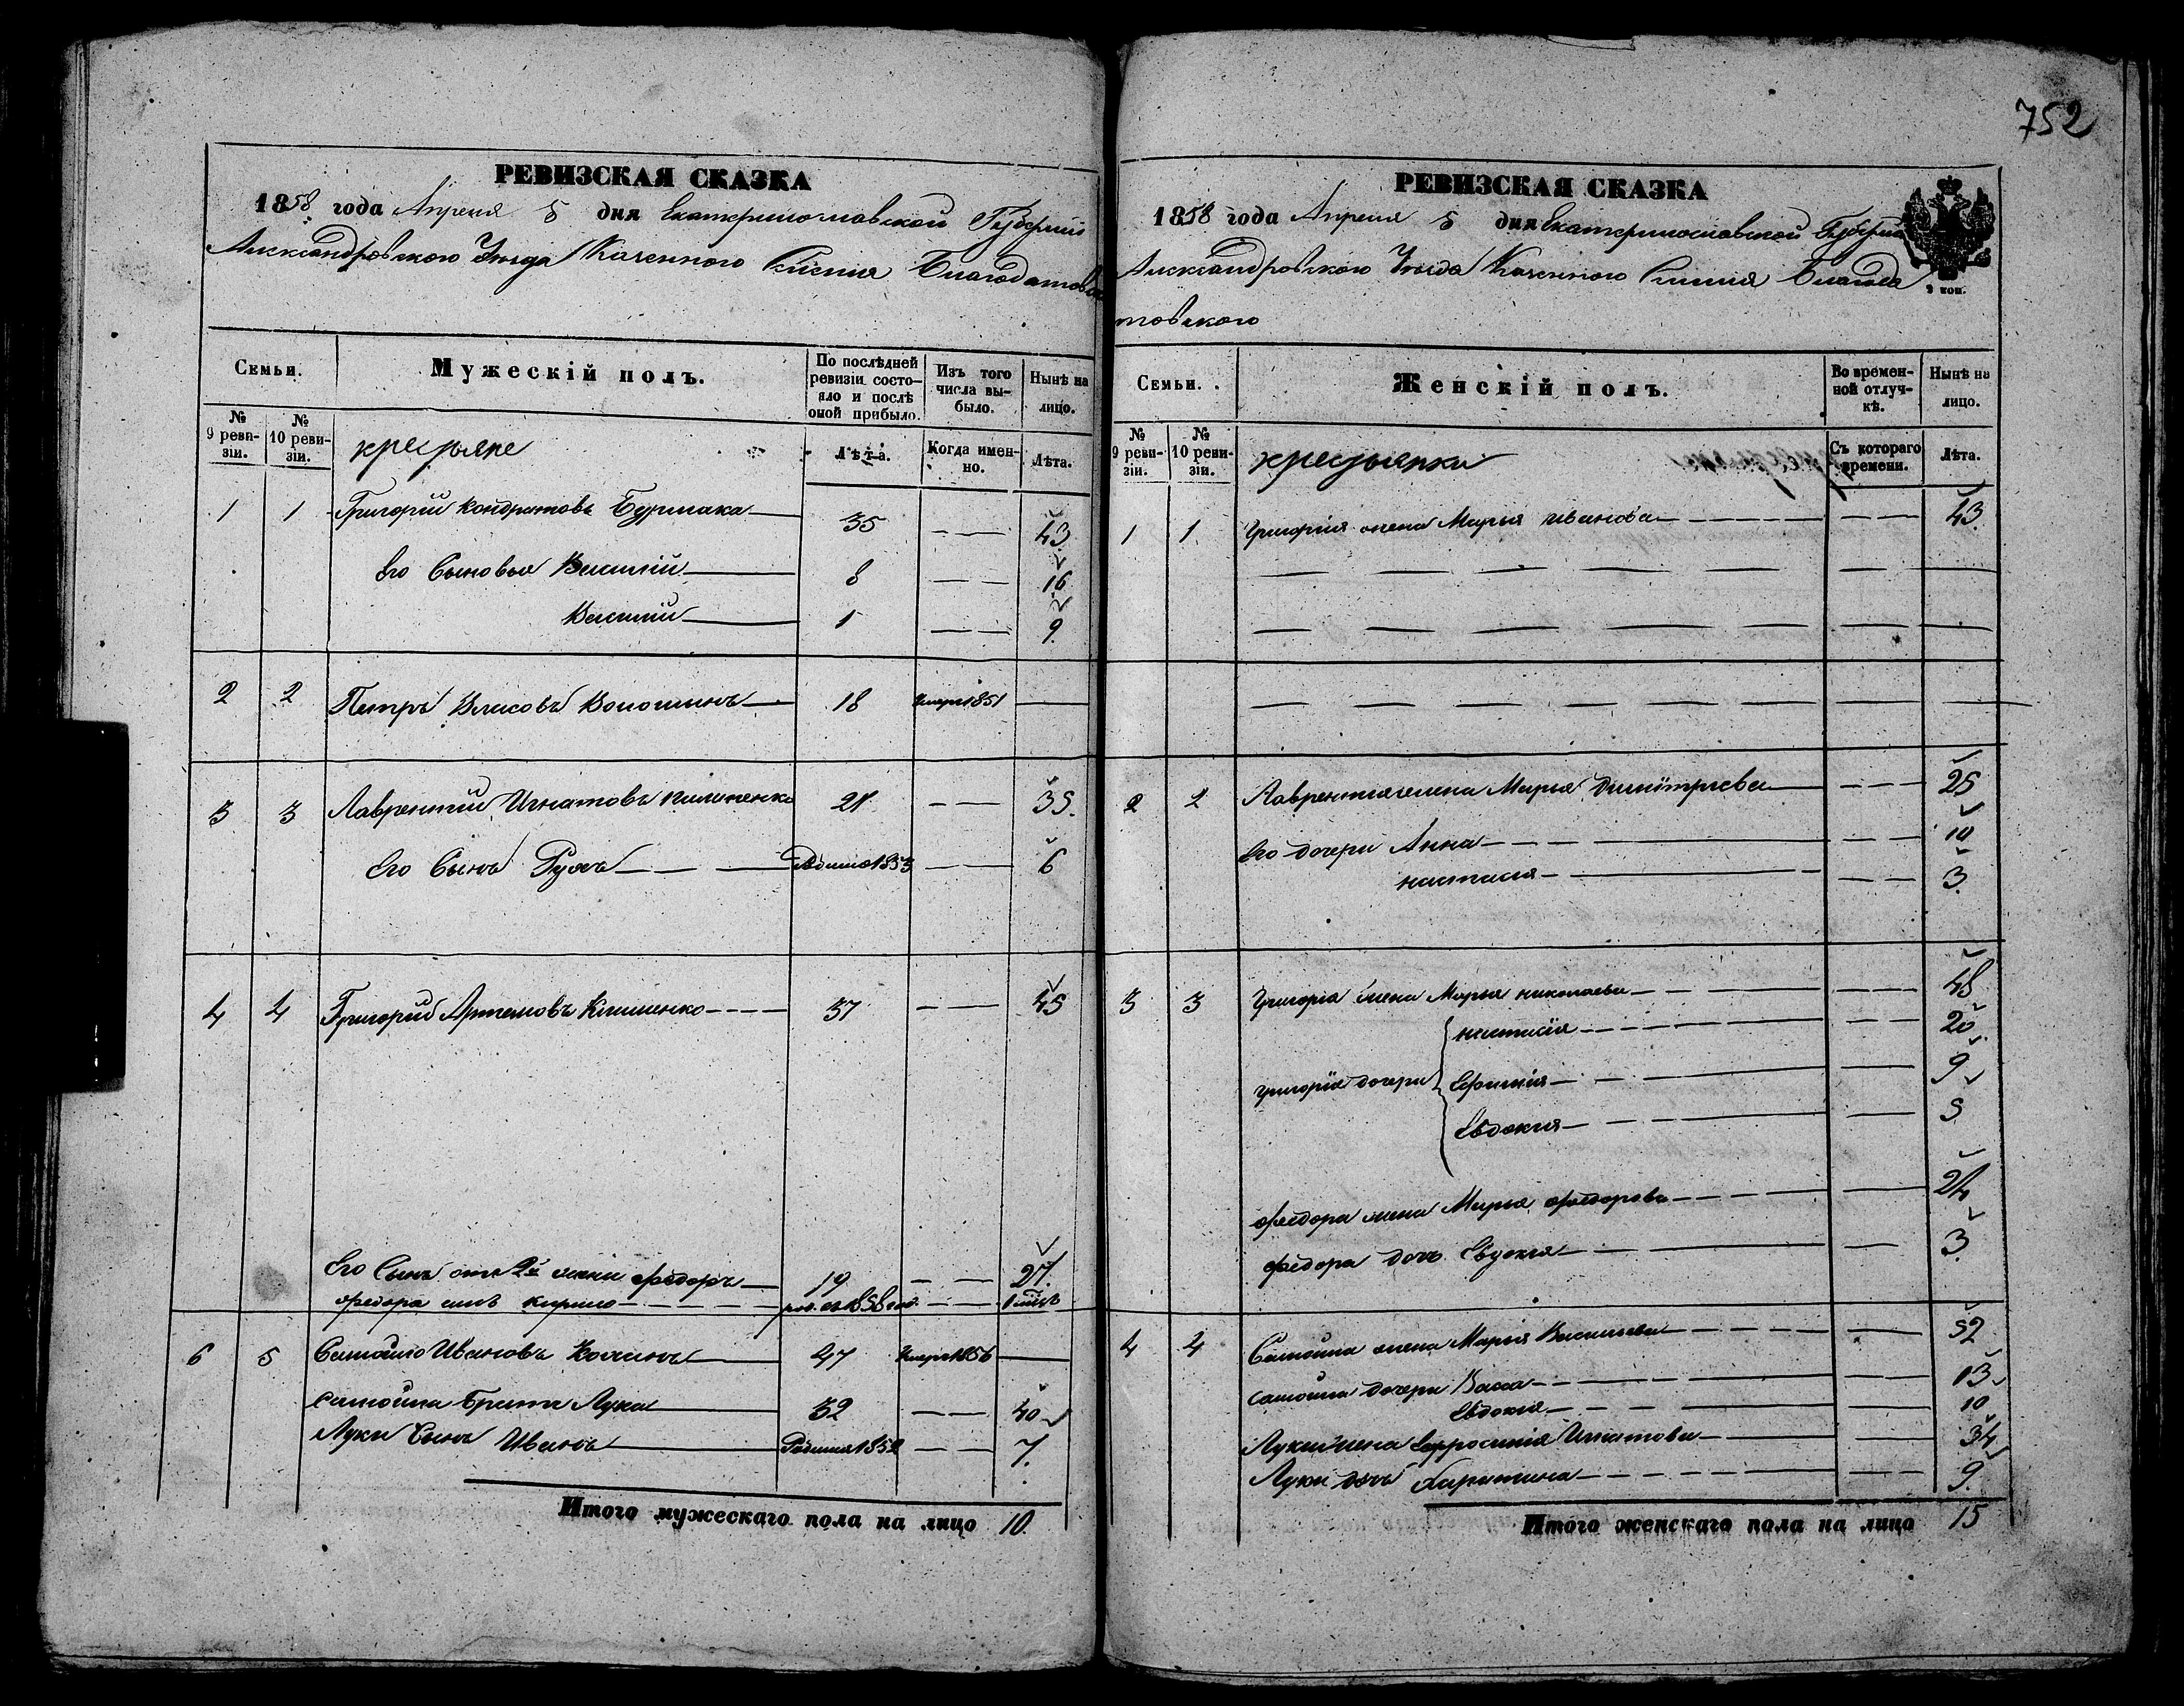 752
РЕВИЗСКАЯ СКАЗКА
1858 года Апреля 5 дня Екатеринославской Губернии
Александровского Уезда Казенного Селения Благодатовск
Семьи.
Мужескій полъ.
По послѣдней ревизіи состояло и послѣ оной прибыло.
Изъ того числа выбыло.
Нынѣ на лицо.
№ 9 ревизіи.
№ 10 ревизіи.
крестьяне
Лѣта.
Когда именно.
Лѣта.
1 1 Григорий Кондратовъ Бурлака 35 43
Его Сыновья Василий 8 16
Василий 1 9
2 2 Петръ Власовъ Волошинъ 18 Умеръ 1851
3 3 Лаврентий Игнатовъ 35.
Его Сынъ 6
4 4 Григорий Артемовъ Клименко 37 45
Его Сынъ отъ 2й жены Федоръ 19 27.
Федора сынъ Кирило
6 5 Самойло Ивановъ 47 Умеръ 1856
Самойла Братъ Лука 32 40
Луки Сынъ Иванъ 7.
Итого мужескаго пола на лицо 10.
РЕВИЗСКАЯ СКАЗКА
1858 года Апреля 5 дня Екатеринославской Губернии
Александровского Уезда Казенного Селения Благода
товского
Семьи.
Женскій полъ.
Во временной отлучкѣ.
Нынѣ на лицо.
№ 9 ревизіи.
№ 10 ревизіи.
крестьянки
Съ котораго времени.
Лѣта.
1 1 Григория жена Марья Иванова 43.
2 2 Лаврентия жена Марья Димитриева 25
Его дочери Анна 10
Настасия 3.
3 3 Григория жена Марья Николаева 48
Настасия 20
Григория дочери Ефимия 9
Евдокия 5
Федора жена Марья Федорова 24
Федора дочь Евдокия 3.
4 4 Самойла жена Марья Васильева 52
Самойла дочери Васса 13
Евдокия 10
Луки жена Ефросиния Игнатова 34
Луки дочь Харитина 9.
Итого женскаго пола на лицо 15